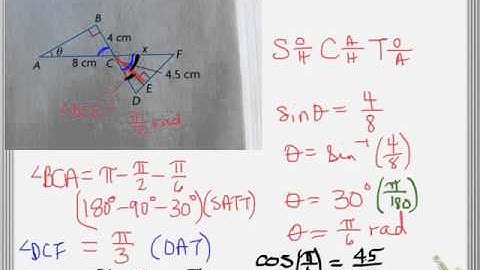 B
4 cm
A
θ
C
x
F
8 cm
4.5 cm
E
D
rad
S O/H C A/H T O/A
sinθ = 4/8
θ = sin⁻¹(4/8)
θ = 30°(π/180)
θ = π/6 rad
∠BCA = π - π/2 - π/6
(180° - 90° - 30°)(SATT)
∠DCF = π/3 (OAT)